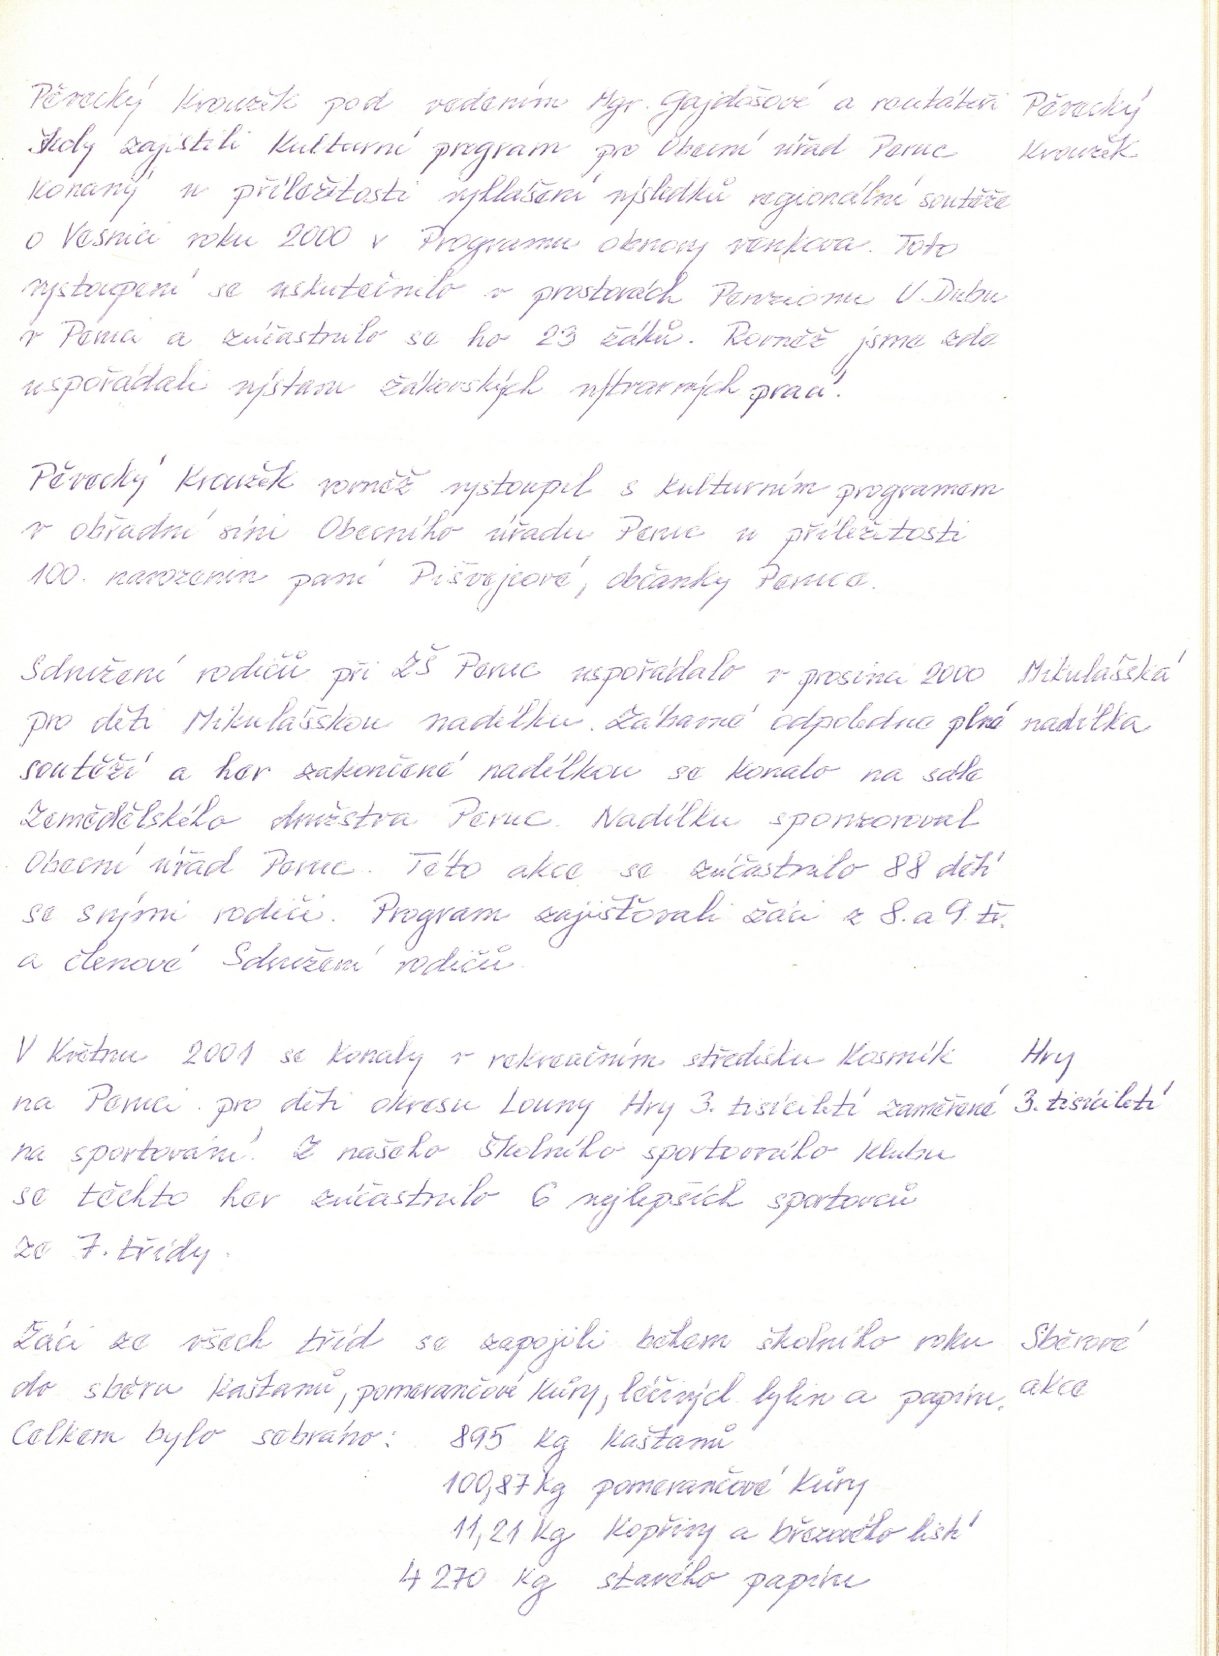 Pěvecký kroužek pod vedením Mgr. Gajdošové a recitátoři
školy zajistili kulturní program pro Obecní úřad Peruc
konaný u příležitosti vyhlášení výsledků regionální soutěže
o Vesnici roku 2000 v Programu obnovy venkova. Toto
vystoupení se uskutečnilo v prostorách Penzionu U Dubu
v Peruci a zúčastnilo se ho 23 žáků. Rovněž jsme zde
uspořádali výstavu žákovských výtvarných prací.
Pěvecký
kroužek
Pěvecký kroužek rovněž vystoupil s kulturním programem
v obřadní síni Obecního úřadu Peruc u příležitosti
100. narozenin paní občanky Peruce.
Sdružení rodičů při ZŠ Peruc uspořádalo v prosinci 2000
pro děti Mikulášskou nadílku. Zábavné odpoledne plné
soutěží a her zakončené nadílkou se konalo na sále
Zemědělského družstva Peruc. Nadílku sponzoroval
Obecní úřad Peruc. Této akce se zúčastnilo 88 dětí
se svými rodiči. Program zajišťovali žáci z 8. a 9. tř.
a členové Sdružení rodičů.
Mikulášská
nadílka
V květnu 2001 se konaly v rekreačním středisku Kosmík
na Peruci pro děti okresu Louny Hry 3. tisíciletí zaměřené
na sportování. Z našeho školního sportovního klubu
se těchto her zúčastnilo 6 nejlepších sportovců
ze 7. třídy.
Hry
3. tisíciletí
Žáci ze všech tříd se zapojili během školního roku
do sběru kaštanů, pomerančové kůry, léčivých bylin a papíru.
Celkem bylo sebráno: 895 kg kaštanů
100,87 kg pomerančové kůry
11,21 kg kopřivy a březového listí
4 270 kg starého papíru
Sběrové
akce